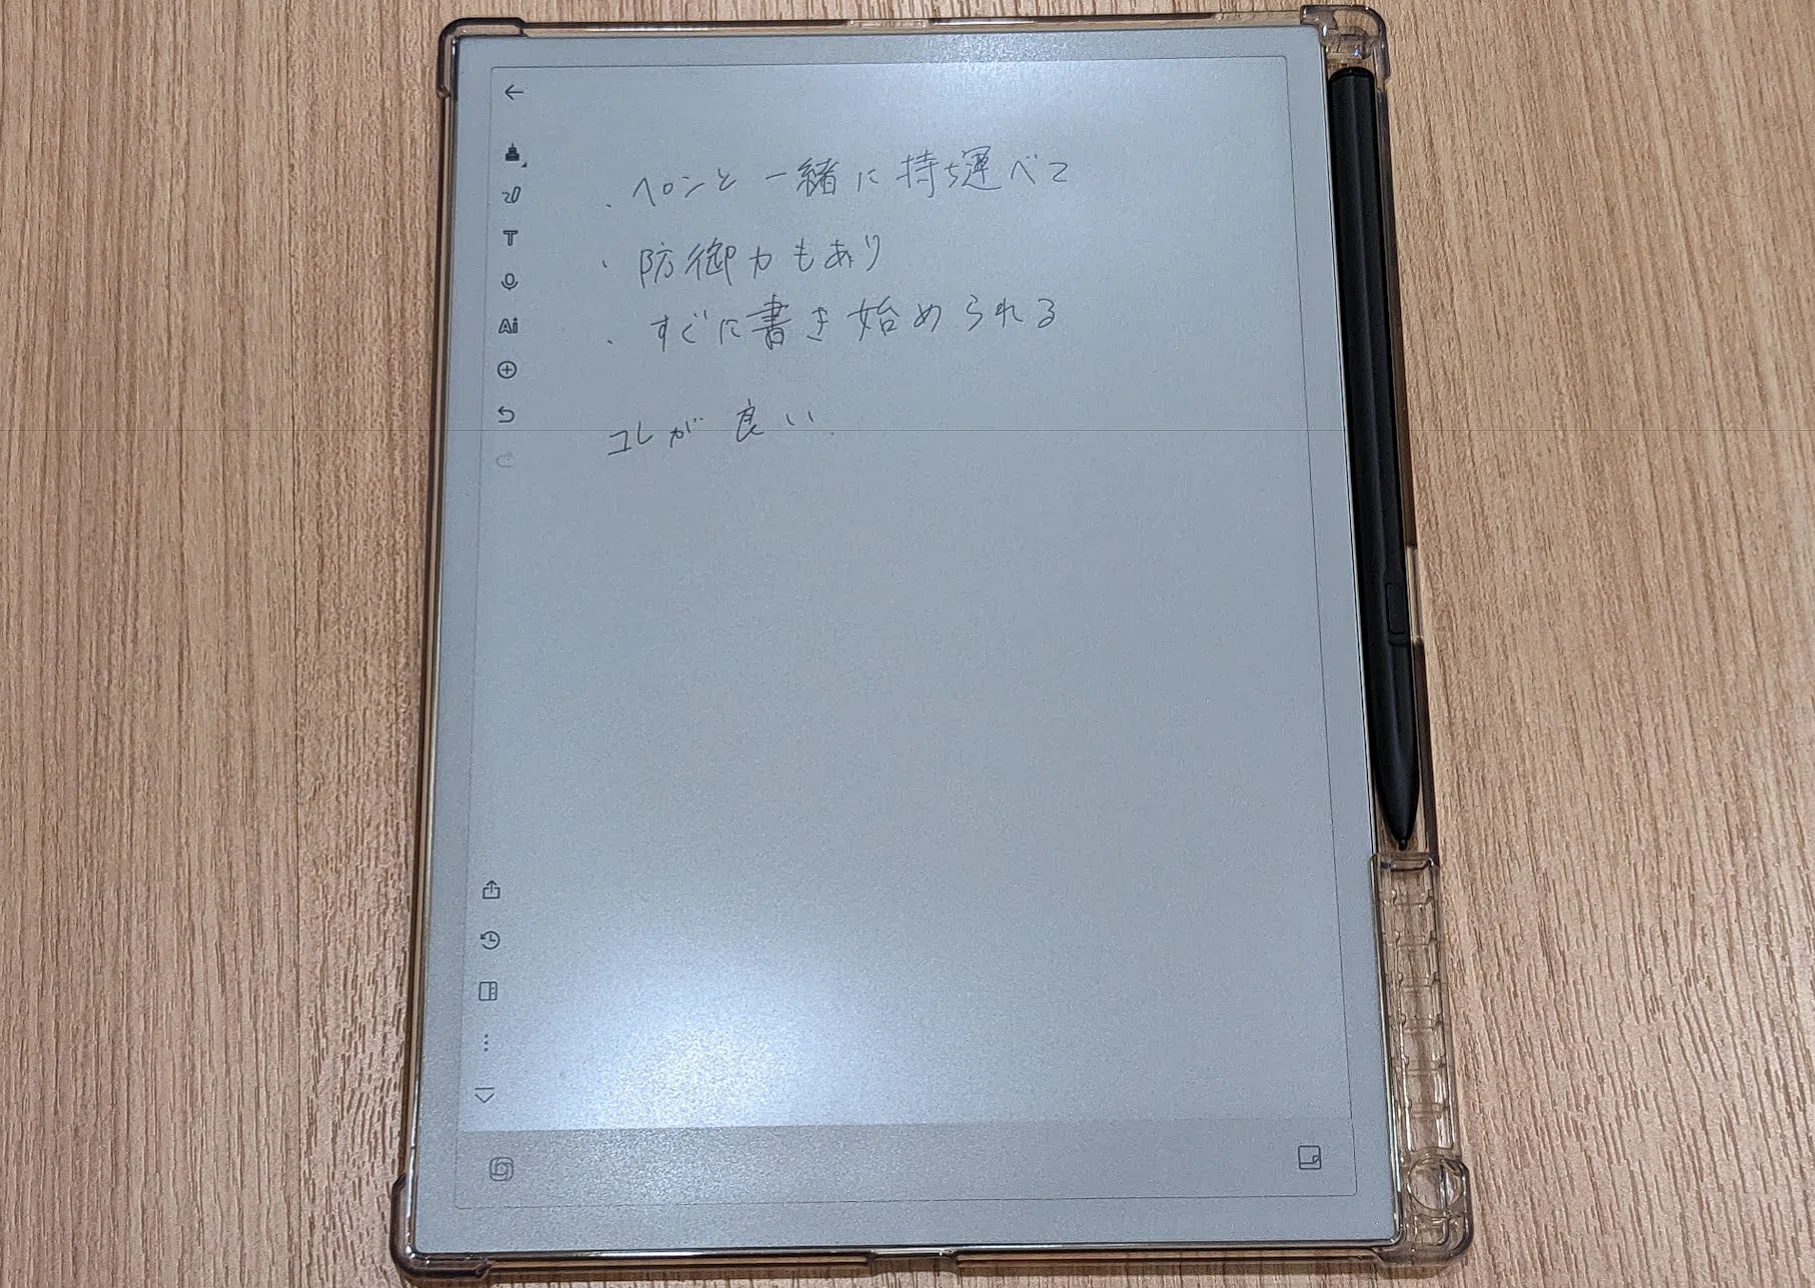 ・ペンと一緒に持ち運べて
・防御力もあり
・すぐに書き始められる
コレが良い.
T
Ai